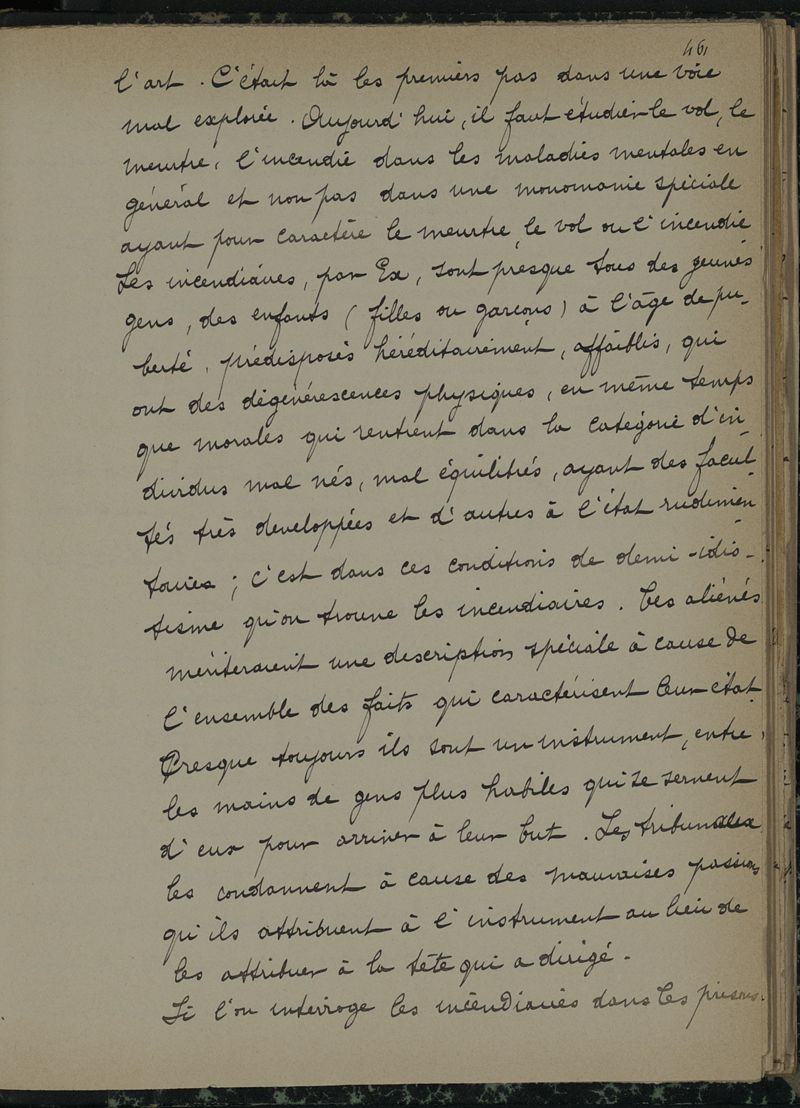 461
l'art. C'était là les premiers pas dans une voie
mal explorée. Aujourd'hui, il faut étudier le vol, le
meurtre, l'incendie dans les maladies mentales en
général et non pas dans une monomanie spéciale
ayant pour caractère le meurtre, le vol ou l'incendie
Les incendiaires, par Ex, sont presque tous des jeunes
gens, des enfants (filles ou garçons) à l'âge de pu-
berté, prédisposés héréditairement, affaiblis, qui
ont des dégénérescences physiques, en même temps
que morales qui rentrent dans la catégorie d'in-
dividus mal nés, mal équilibrés, ayant des facul-
tés très developpées et d'autres à l'état rudimen-
taires ; c'est dans ces conditions de demi-idio-
tisme qu'on trouve les incendiaires. Ces aliénés
mériteraient une description spéciale à cause de
l'ensemble des faits qui caractérisent leur état
Presque toujours ils sont un instrument, entre
les mains de gens plus habiles qui se servent
d'eux pour arriver à leur but. Les tribunaux
les condamnent à cause des mauvaises passions
qu'ils attribuent à l'instrument au lieu de
les attribuer à la tête qui a dirigé.
Si l'on interroge les incendiaires dans les prisons